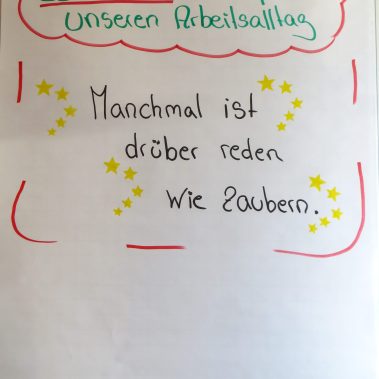 unseren Arbeitsalltag
Manchmal ist
drüber reden
wie Zaubern.